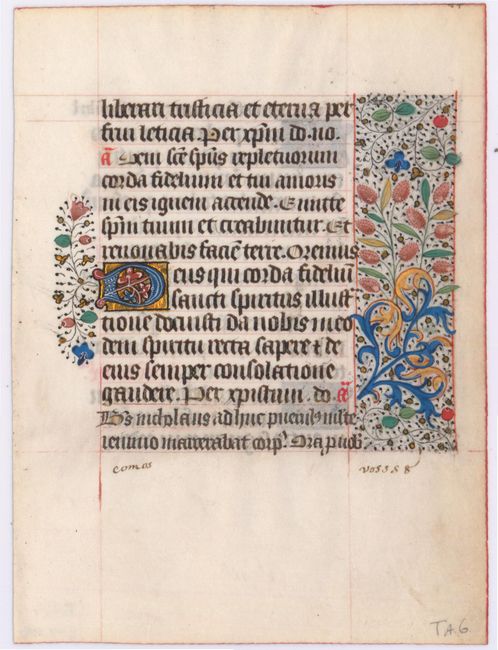 liberari tristicia et eterna per
frui leticia Per xp̄m do. no.
a̅ Veni sc̄e sp̄us repletuorum
corda fidelium et tui amoris
in eis ignem accende. Emitte
sp̄m tuum et creabuntur. Et
renovabis faciē terre. Oremus
Deus qui corda fideliū
sancti spiritus illust
tione docuisti da nobis in eo
dem spiritu recta sapere & de
eius semper consolatione
gaudere. Per xpistum. do. a̅
Bt̄s nicholaus adhuc
corpꝰ. Ora
comos
TA6